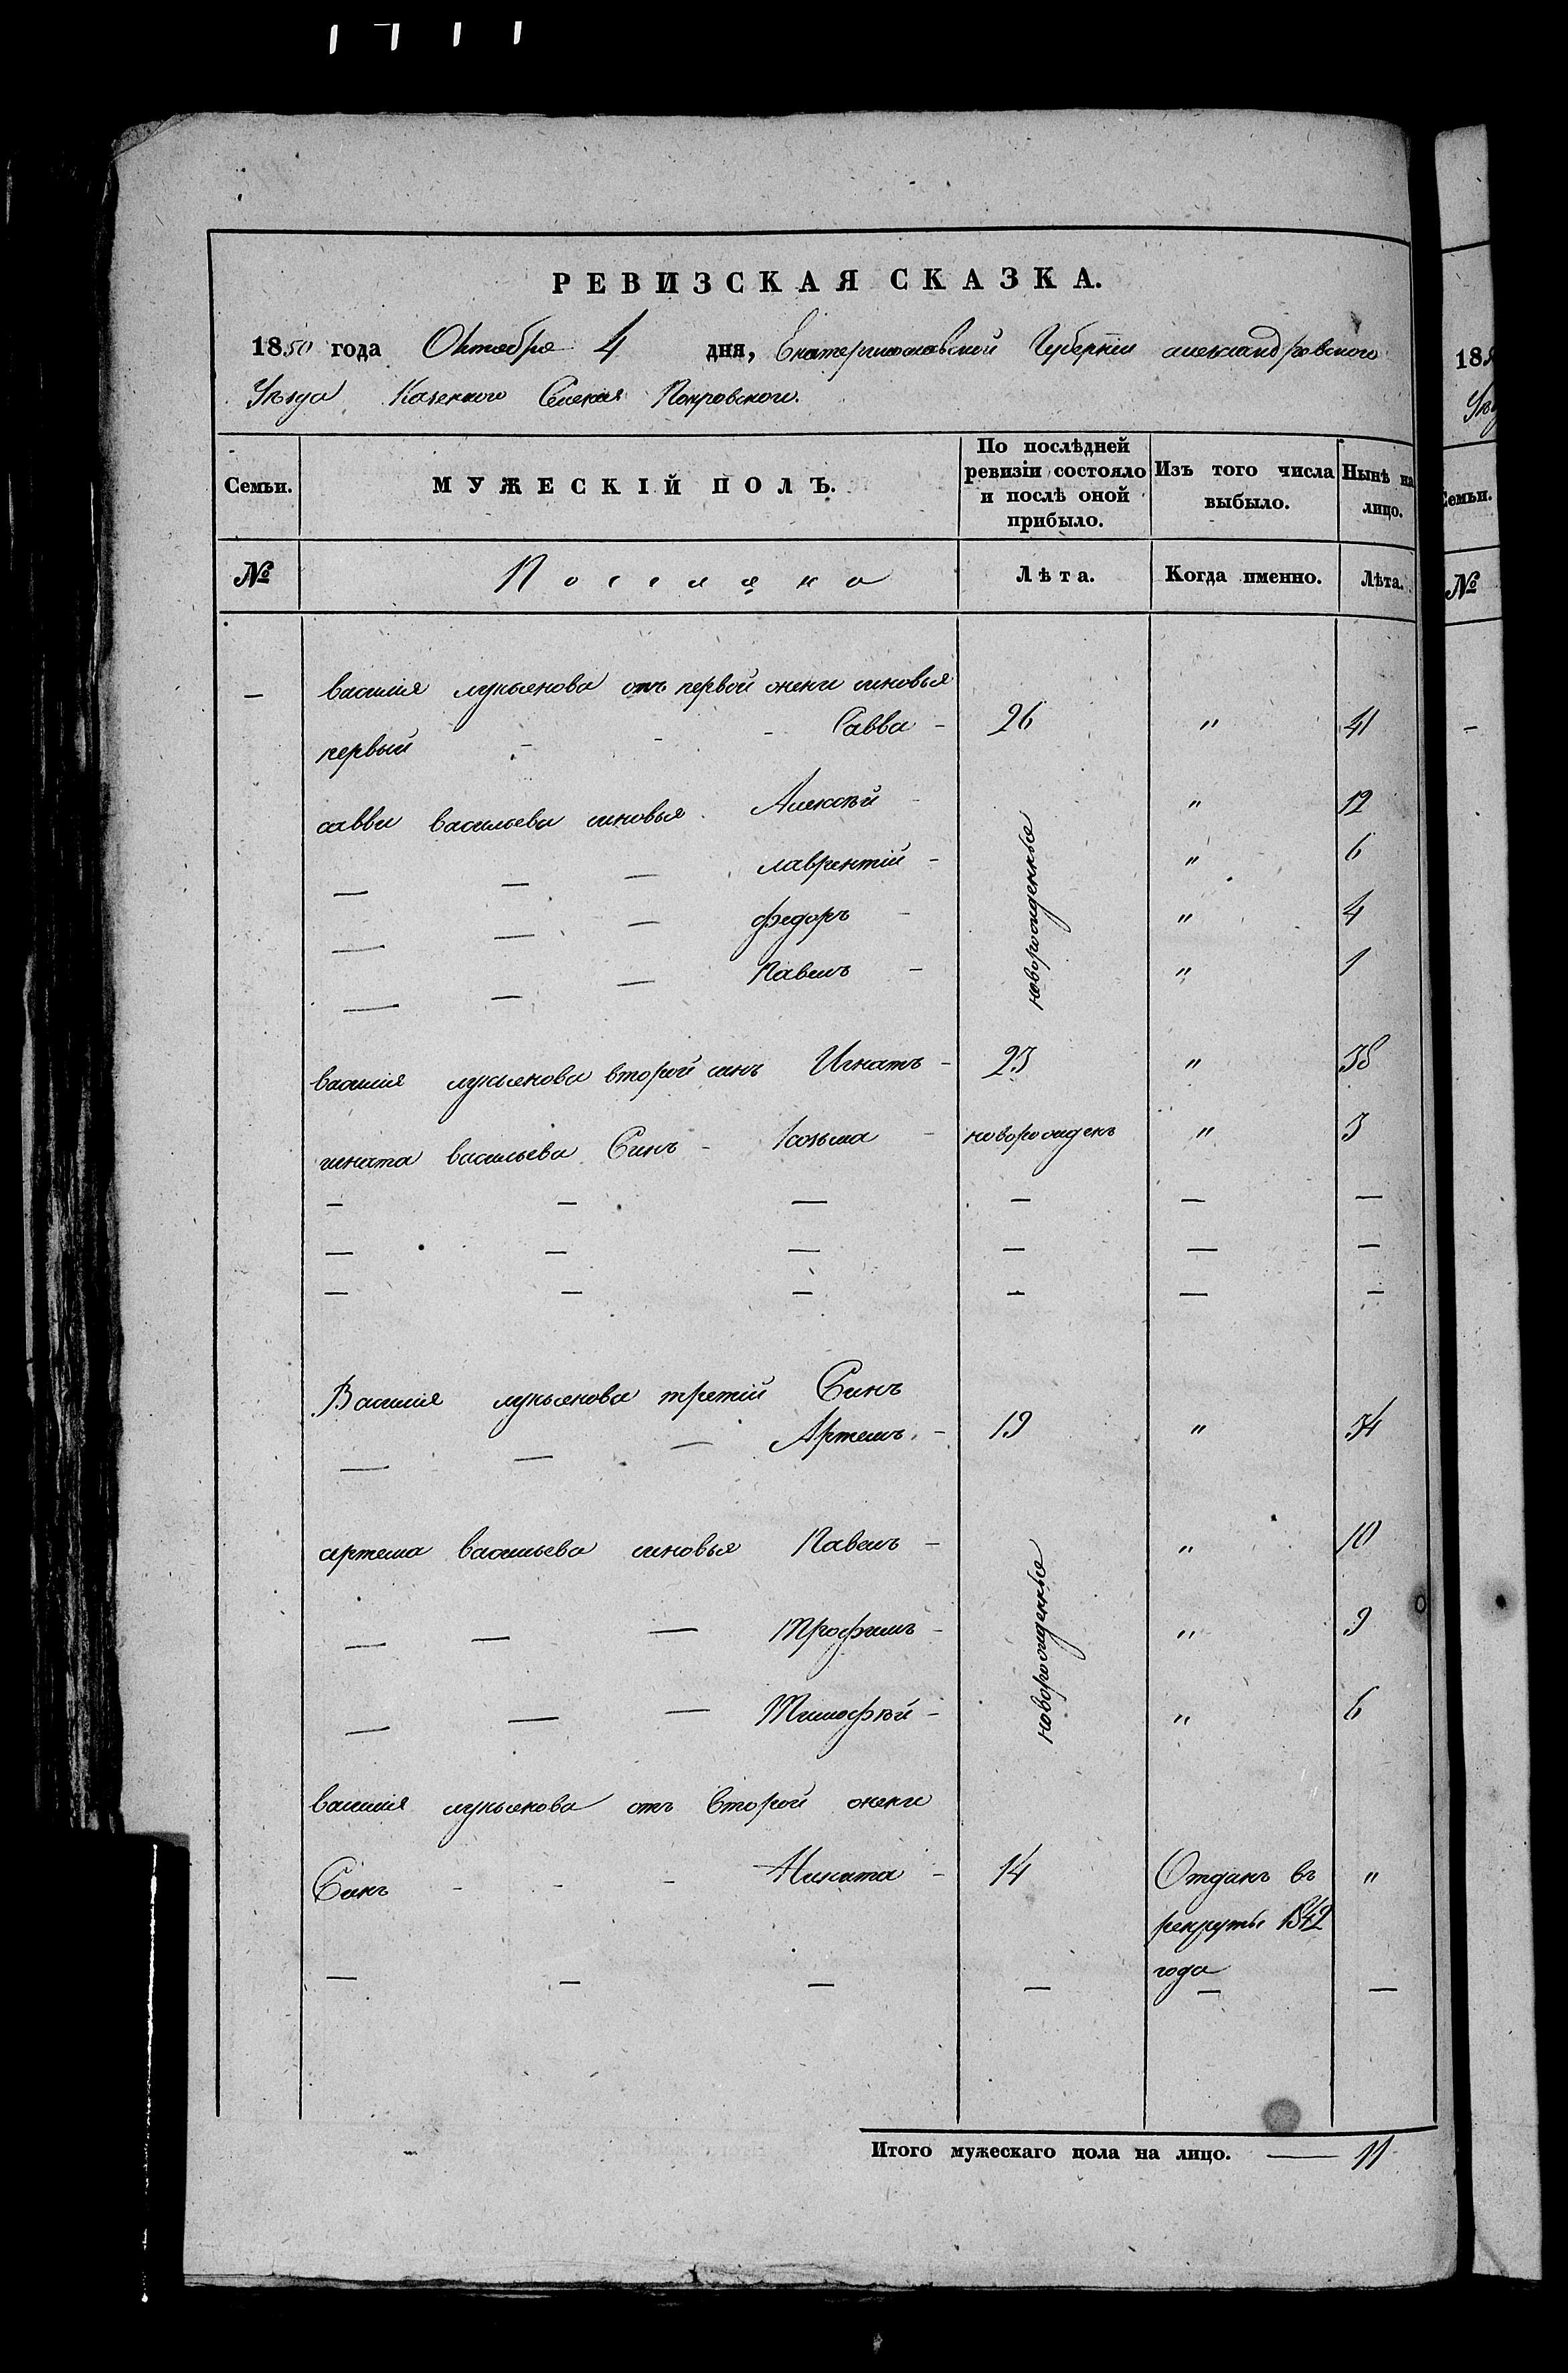 РЕВИЗСКАЯ СКАЗКА.
1850 года Октобра 4 дня, Екатеринославской Губерніи александровского
Уѣзда Казенного Селенія Покровского.
Семьи. МУЖЕСКІЙ ПОЛЪ. По послѣдней ревизіи состояло и послѣ оной прибыло. Изъ того числа выбыло. Нынѣ на лицо.
№ Поселяно Лѣта. Когда именно. Лѣта.
— василія лукьянова отъ первой жени синовья
первый - - - Савва - 26 " 41
савви васильева синовья Алексѣй - новорожденные " 12
— — — лаврентій - " 6
— — — федоръ - " 4
— — — Павелъ - " 1
василія лукьянова второй синъ Игнатъ - 23 " 38
игната васильева Синъ - Козьма - новорожденъ " 3
— — — — — —
— — — — — —
— — — — — —
Василія лукьянова третій Синъ
— — — Артемъ - 19 " 34
артема васильева синовья Павелъ - новорожденные " 10
— — — Трофимъ - " 9
— — — Тимофѣй - " 6
василія лукьянова отъ второй жени
Синъ - - - Никита - 14 Отданъ въ "
рекруты 1842
года
— — — — — —
Итого мужескаго пола на лицо. — 11
188
Уѣз
Семьи.
№
—